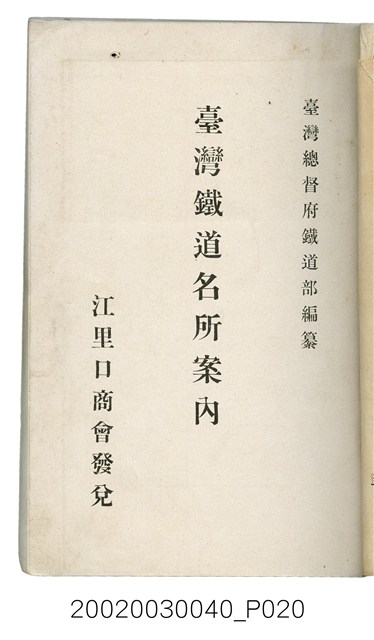 臺灣總督府鐵道部編纂
臺灣鐵道名所案內
江里口商會發兌
20020030040_P020